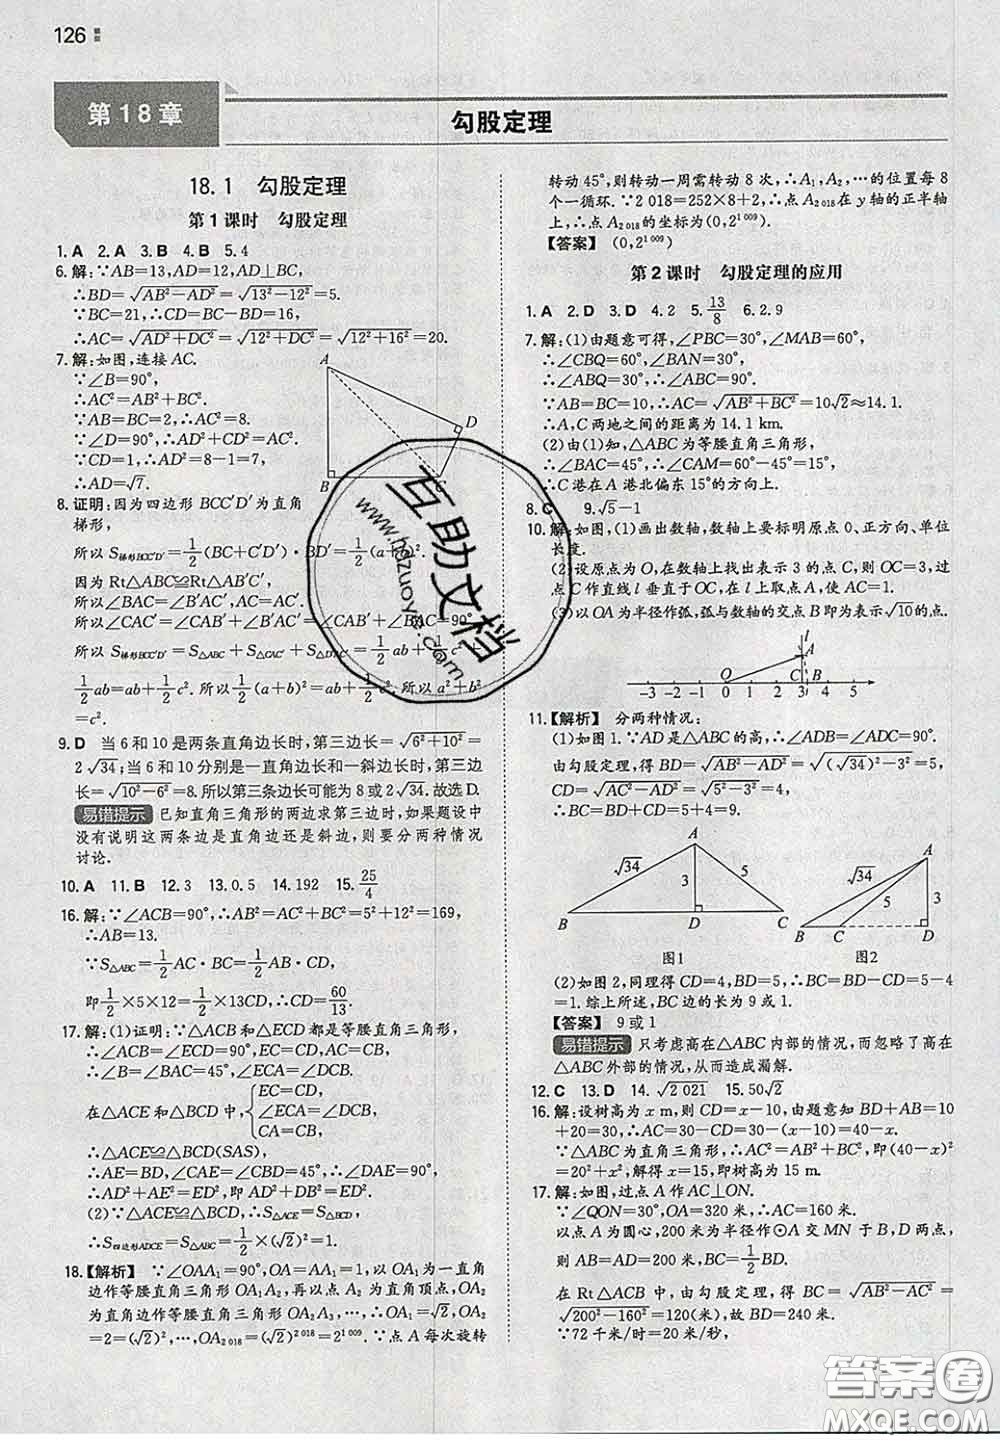 126
第18章
勾股定理
18.1 勾股定理
第1课时 勾股定理
1.A 2.A 3.B 4.B 5.4
6.解:∵AB=13,AD=12,AD⊥BC,
∴BD=√(AB²-AD²)=√(13²-12²)=5.
∵BC=21,∴CD=BC-BD=16,
∴AC=√(AD²+DC²)=√(12²+DC²)=√(12²+16²)=20.
7.解:如图,连接AC.
∵∠B=90°,
∴AC²=AB²+BC².
∵AB=BC=2,∴AC²=8.
∵∠D=90°,∴AD²+CD²=AC².
∵CD=1,∴AD²=8-1=7,
∴AD=√7.
A
D
B
C
8.证明:因为四边形BCC′D′为直角
梯形,
所以S梯形BCC′D′=1/2(BC+C′D′)·BD′=1/2(a+b)².
因为Rt△ABC≌Rt△AB′C′,
所以∠BAC=∠B′AC′,
所以∠CAC′=∠CAB′+∠B′AC′=∠CAB′+∠BAC=90°.
所以S梯形BCC′D′=S△ABC+S△CAC′+S△D′AC′=1/2ab+1/2c²+
1/2ab=ab+1/2c².所以1/2(a+b)²=ab+1/2c².所以a²+b²
=c².
9.D 当6和10是两条直角边长时,第三边长=√(6²+10²)=
2√34;当6和10分别是一直角边长和一斜边长时,第三边
长=√(10²-6²)=8.所以第三条边长可能为8或2√34.故选D.
易错提示 已知直角三角形的两边求第三边时,如果题设中
没有说明这两条边是直角边还是斜边,则要分两种情况
讨论.
10.A 11.B 12.3 13.0.5 14.192 15.25/4
16.解:∵∠ACB=90°,∴AB²=AC²+BC²=5²+12²=169,
∴AB=13.
∵S△ABC=1/2AC·BC=1/2AB·CD,
即1/2×5×12=1/2×13CD,∴CD=60/13.
17.解:(1)证明:∵△ACB和△ECD都是等腰直角三角形,
∴∠ACB=∠ECD=90°,EC=CD,AC=CB,
∴∠ACE=∠BCD=90°-∠ACD.
在△ACE和△BCD中,{EC=DC,
∠ECA=∠DCB,
CA=CB,
∴△ACE≌△BCD(SAS),
∴AE=BD,∠CAE=∠CBD=45°,∴∠DAE=90°.
∴AD²+AE²=ED²,即AD²+BD²=ED².
(2)∵△ACE≌△BCD,∴S△ACE=S△BCD,
∴S四边形ADCE=S△ABC=1/2×(√2)²=1.
18.【解析】 ∵∠OAA₁=90°,OA=AA₁=1,以OA₁为一直角
边作等腰直角三角形OA₁A₂,再以OA₂为直角顶点,OA₂
为直角边作等腰直角三角形OA₂A₃,…,∴OA₁=√2,OA₂
=2=(√2)²,…,OA₂₀₁₈=(√2)²⁰¹⁸=2¹⁰⁰⁹.∵点A每次旋转
转动45°,则转动一周需转动8次,∴A₁,A₂,…的位置每8
个一循环.∵2 018=252×8+2,∴点A₂₀₁₈在y轴的正半轴
上,∴点A₂₀₁₈的坐标为(0,2¹⁰⁰⁹).
【答案】 (0,2¹⁰⁰⁹)
第2课时 勾股定理的应用
1.A 2.D 3.D 4.2 5.13/8 6.2.9
7.解:(1)由题意可得,∠PBC=30°,∠MAB=60°,
∴∠CBQ=60°,∠BAN=30°,
∴∠ABQ=30°,∴∠ABC=90°.
∵AB=BC=10,∴AC=√(AB²+BC²)=10√2≈14.1.
∴A,C两地之间的距离为14.1 km.
(2)由(1)知,△ABC为等腰直角三角形,
∴∠BAC=45°,∴∠CAM=60°-45°=15°,
∴C港在A港北偏东15°的方向上.
8.C 9.√5-1
10.解:如图,(1)画出数轴,数轴上要标明原点0、正方向、单位
长度.
(2)设原点为O,在数轴上找出表示3的点C,则OC=3,过
点C作直线l垂直于OC,在l上量取点A,使AC=1.
(3)以OA为半径作弧,弧与数轴的交点B即为表示√10的点.
l
A
O C B
-3 -2 -1 0 1 2 3 4 5
11.【解析】 分两种情况:
(1)如图1.∵AD是△ABC的高,∴∠ADB=∠ADC=90°.
由勾股定理,得BD=√(AB²-AD²)=√((√34)²-3²)=5,
CD=√(AC²-AD²)=√(5²-3²)=4,
∴BC=BD+CD=5+4=9.
A
√34
3
5
B D C
图1
A
√34
5
3
B C D
图2
(2)如图2,同理得CD=4,BD=5,∴BC=BD-CD=5-4
=1.综上所述,BC的长为9或1.
【答案】 9或1
易错提示 只考虑高在△ABC内部的情况,而忽略了高在
△ABC外部的情况,从而造成漏解.
12.C 13.D 14.√2 021 15.50√2
16.解:设树高为x m,则CD=x-10,由题意知BD+AB=10
+20=30,∴AC=30-CD=30-(x-10)=40-x.
∵△ABC为直角三角形,∴AC²=AB²+BC²,即(40-x)²
=20²+x²,解得x=15,即树高为15 m.
17.解:如图,过点A作AC⊥ON.
∵∠QON=30°,OA=320米,∴AC=160米.
以点A为圆心,200米为半径作⊙A交MN于B,D两点,
则AB=AD=200米,BC=1/2BD.
在Rt△ACB中,由勾股定理,得BC=√(AB²-AC²)=
√(200²-160²)=120(米),故BD=240米.
∵72千米/时=20米/秒,
互助文档
答案圈
MXQE.COM